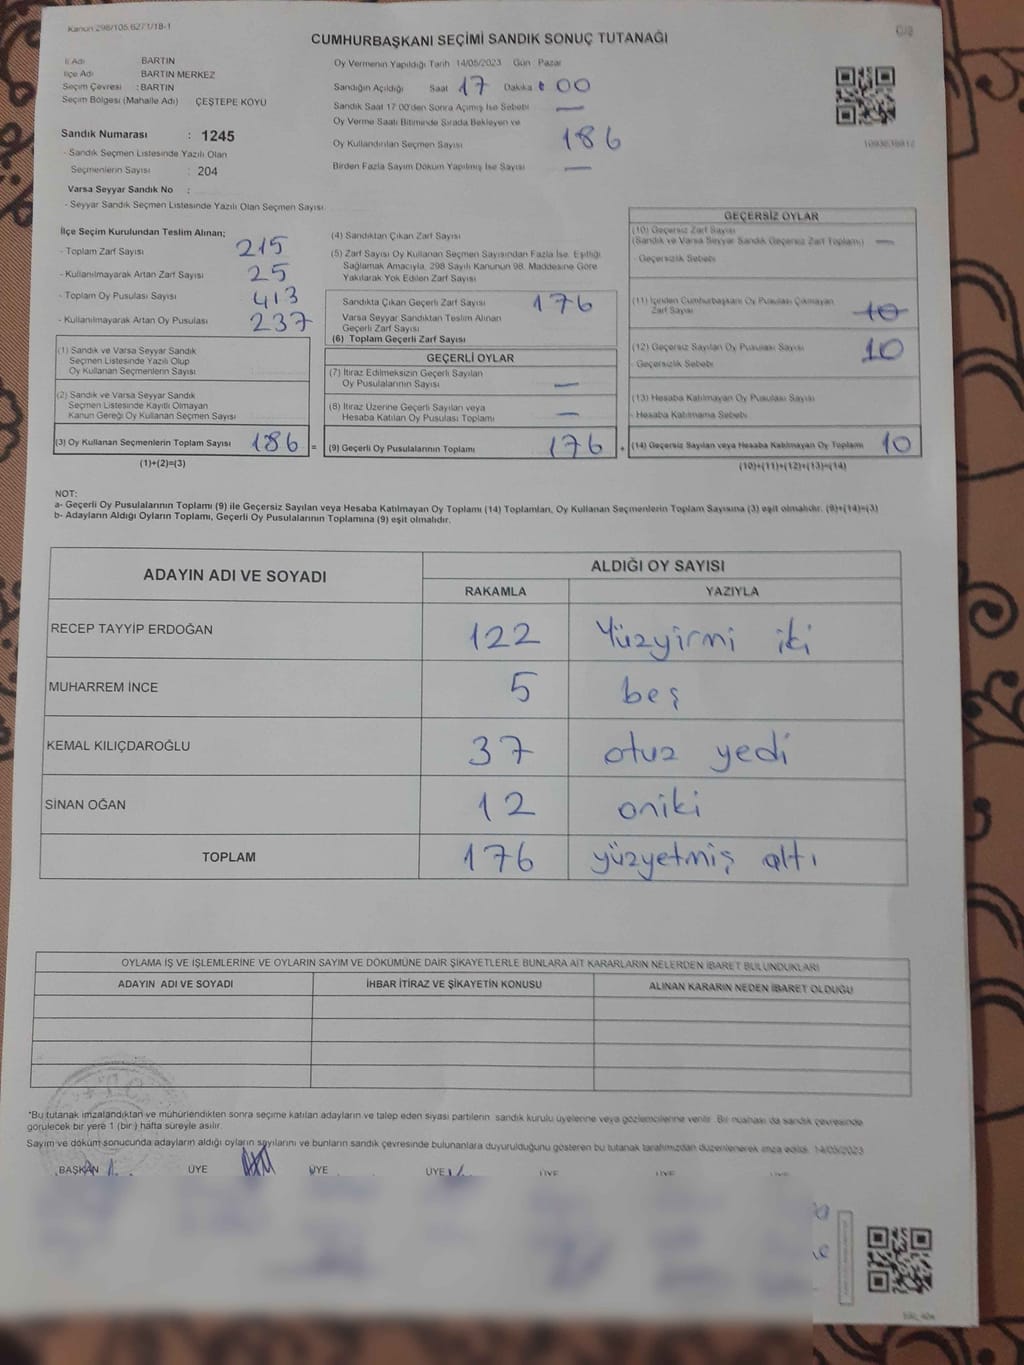 Kanun 298/105.627/1/18-1
C/2
CUMHURBAŞKANI SEÇİMİ SANDIK SONUÇ TUTANAĞI
İl Adı BARTIN
İlçe Adı BARTIN MERKEZ
Seçim Çevresi : BARTIN
Seçim Bölgesi (Mahalle Adı) ÇEŞTEPE KÖYÜ
Sandık Numarası : 1245
- Sandık Seçmen Listesinde Yazılı Olan
Seçmenlerin Sayısı : 204
Varsa Seyyar Sandık No :
- Seyyar Sandık Seçmen Listesinde Yazılı Olan Seçmen Sayısı
Oy Vermenin Yapıldığı Tarih 14/05/2023 Gün Pazar
Sandığın Açıldığı Saat 17 Dakika : 00
Sandık Saat 17:00'den Sonra Açılmış İse Sebebi —
Oy Verme Saati Bitiminde Sırada Bekleyen ve
Oy Kullandırılan Seçmen Sayısı 186
Birden Fazla Sayım Döküm Yapılmış İse Sayısı —
İlçe Seçim Kurulundan Teslim Alınan;
- Toplam Zarf Sayısı 215
- Kullanılmayarak Artan Zarf Sayısı 25
- Toplam Oy Pusulası Sayısı 413
- Kullanılmayarak Artan Oy Pusulası 237
(1) Sandık ve Varsa Seyyar Sandık
Seçmen Listesinde Yazılı Olup
Oy Kullanan Seçmenlerin Sayısı
(2) Sandık ve Varsa Seyyar Sandık
Seçmen Listesinde Kayıtlı Olmayan
Kanun Gereği Oy Kullanan Seçmen Sayısı
(3) Oy Kullanan Seçmenlerin Toplam Sayısı 186 =
(1)+(2)=(3)
(4) Sandıktan Çıkan Zarf Sayısı
(5) Zarf Sayısı Oy Kullanan Seçmen Sayısından Fazla İse, Eşitliği
Sağlamak Amacıyla, 298 Sayılı Kanunun 98. Maddesine Göre
Yakılarak Yok Edilen Zarf Sayısı
Sandıkta Çıkan Geçerli Zarf Sayısı 176
Varsa Seyyar Sandıktan Teslim Alınan
Geçerli Zarf Sayısı
(6) Toplam Geçerli Zarf Sayısı
GEÇERLİ OYLAR
(7) İtiraz Edilmeksizin Geçerli Sayılan
Oy Pusulalarının Sayısı —
(8) İtiraz Üzerine Geçerli Sayılan veya
Hesaba Katılan Oy Pusulası Toplamı —
(9) Geçerli Oy Pusulalarının Toplamı 176 +
GEÇERSİZ OYLAR
(10) Geçersiz Zarf Sayısı
(Sandık ve Varsa Seyyar Sandık Geçersiz Zarf Toplamı) —
- Geçersizlik Sebebi
(11) İçinden Cumhurbaşkanı Oy Pusulası Çıkmayan
Zarf Sayısı 10
(12) Geçersiz Sayılan Oy Pusulası Sayısı 10
- Geçersizlik Sebebi
(13) Hesaba Katılmayan Oy Pusulası Sayısı
- Hesaba Katılmama Sebebi
(14) Geçersiz Sayılan veya Hesaba Katılmayan Oy Toplamı 10
(10)+(11)+(12)+(13)=(14)
NOT:
a- Geçerli Oy Pusulalarının Toplamı (9) ile Geçersiz Sayılan veya Hesaba Katılmayan Oy Toplamı (14) Toplamları, Oy Kullanan Seçmenlerin Toplam Sayısına (3) eşit olmalıdır. (9)+(14)=(3)
b- Adayların Aldığı Oyların Toplamı, Geçerli Oy Pusulalarının Toplamına (9) eşit olmalıdır.
ADAYIN ADI VE SOYADI ALDIĞI OY SAYISI
RAKAMLA YAZIYLA
RECEP TAYYİP ERDOĞAN 122 Yüzyirmi iki
MUHARREM İNCE 5 beş
KEMAL KILIÇDAROĞLU 37 otuz yedi
SİNAN OĞAN 12 oniki
TOPLAM 176 yüzyetmiş altı
OYLAMA İŞ VE İŞLEMLERİNE VE OYLARIN SAYIM VE DÖKÜMÜNE DAİR ŞİKAYETLERLE BUNLARA AİT KARARLARIN NELERDEN İBARET BULUNDUKLARI
ADAYIN ADI VE SOYADI İHBAR İTİRAZ VE ŞİKAYETİN KONUSU ALINAN KARARIN NEDEN İBARET OLDUĞU
*Bu tutanak imzalandıktan ve mühürlendikten sonra seçime katılan adayların ve talep eden siyasi partilerin sandık kurulu üyelerine veya gözlemcilerine verilir. Bir nüshası da sandık çevresinde
görülecek bir yere 1 (bir) hafta süreyle asılır.
Sayım ve döküm sonucunda adayların aldığı oyların sayılarını ve bunların sandık çevresinde bulunanlara duyurulduğunu gösteren bu tutanak tarafımızdan düzenlenerek imza edildi. 14/05/2023
BAŞKAN ÜYE ÜYE ÜYE ÜYE ÜYE ÜYE